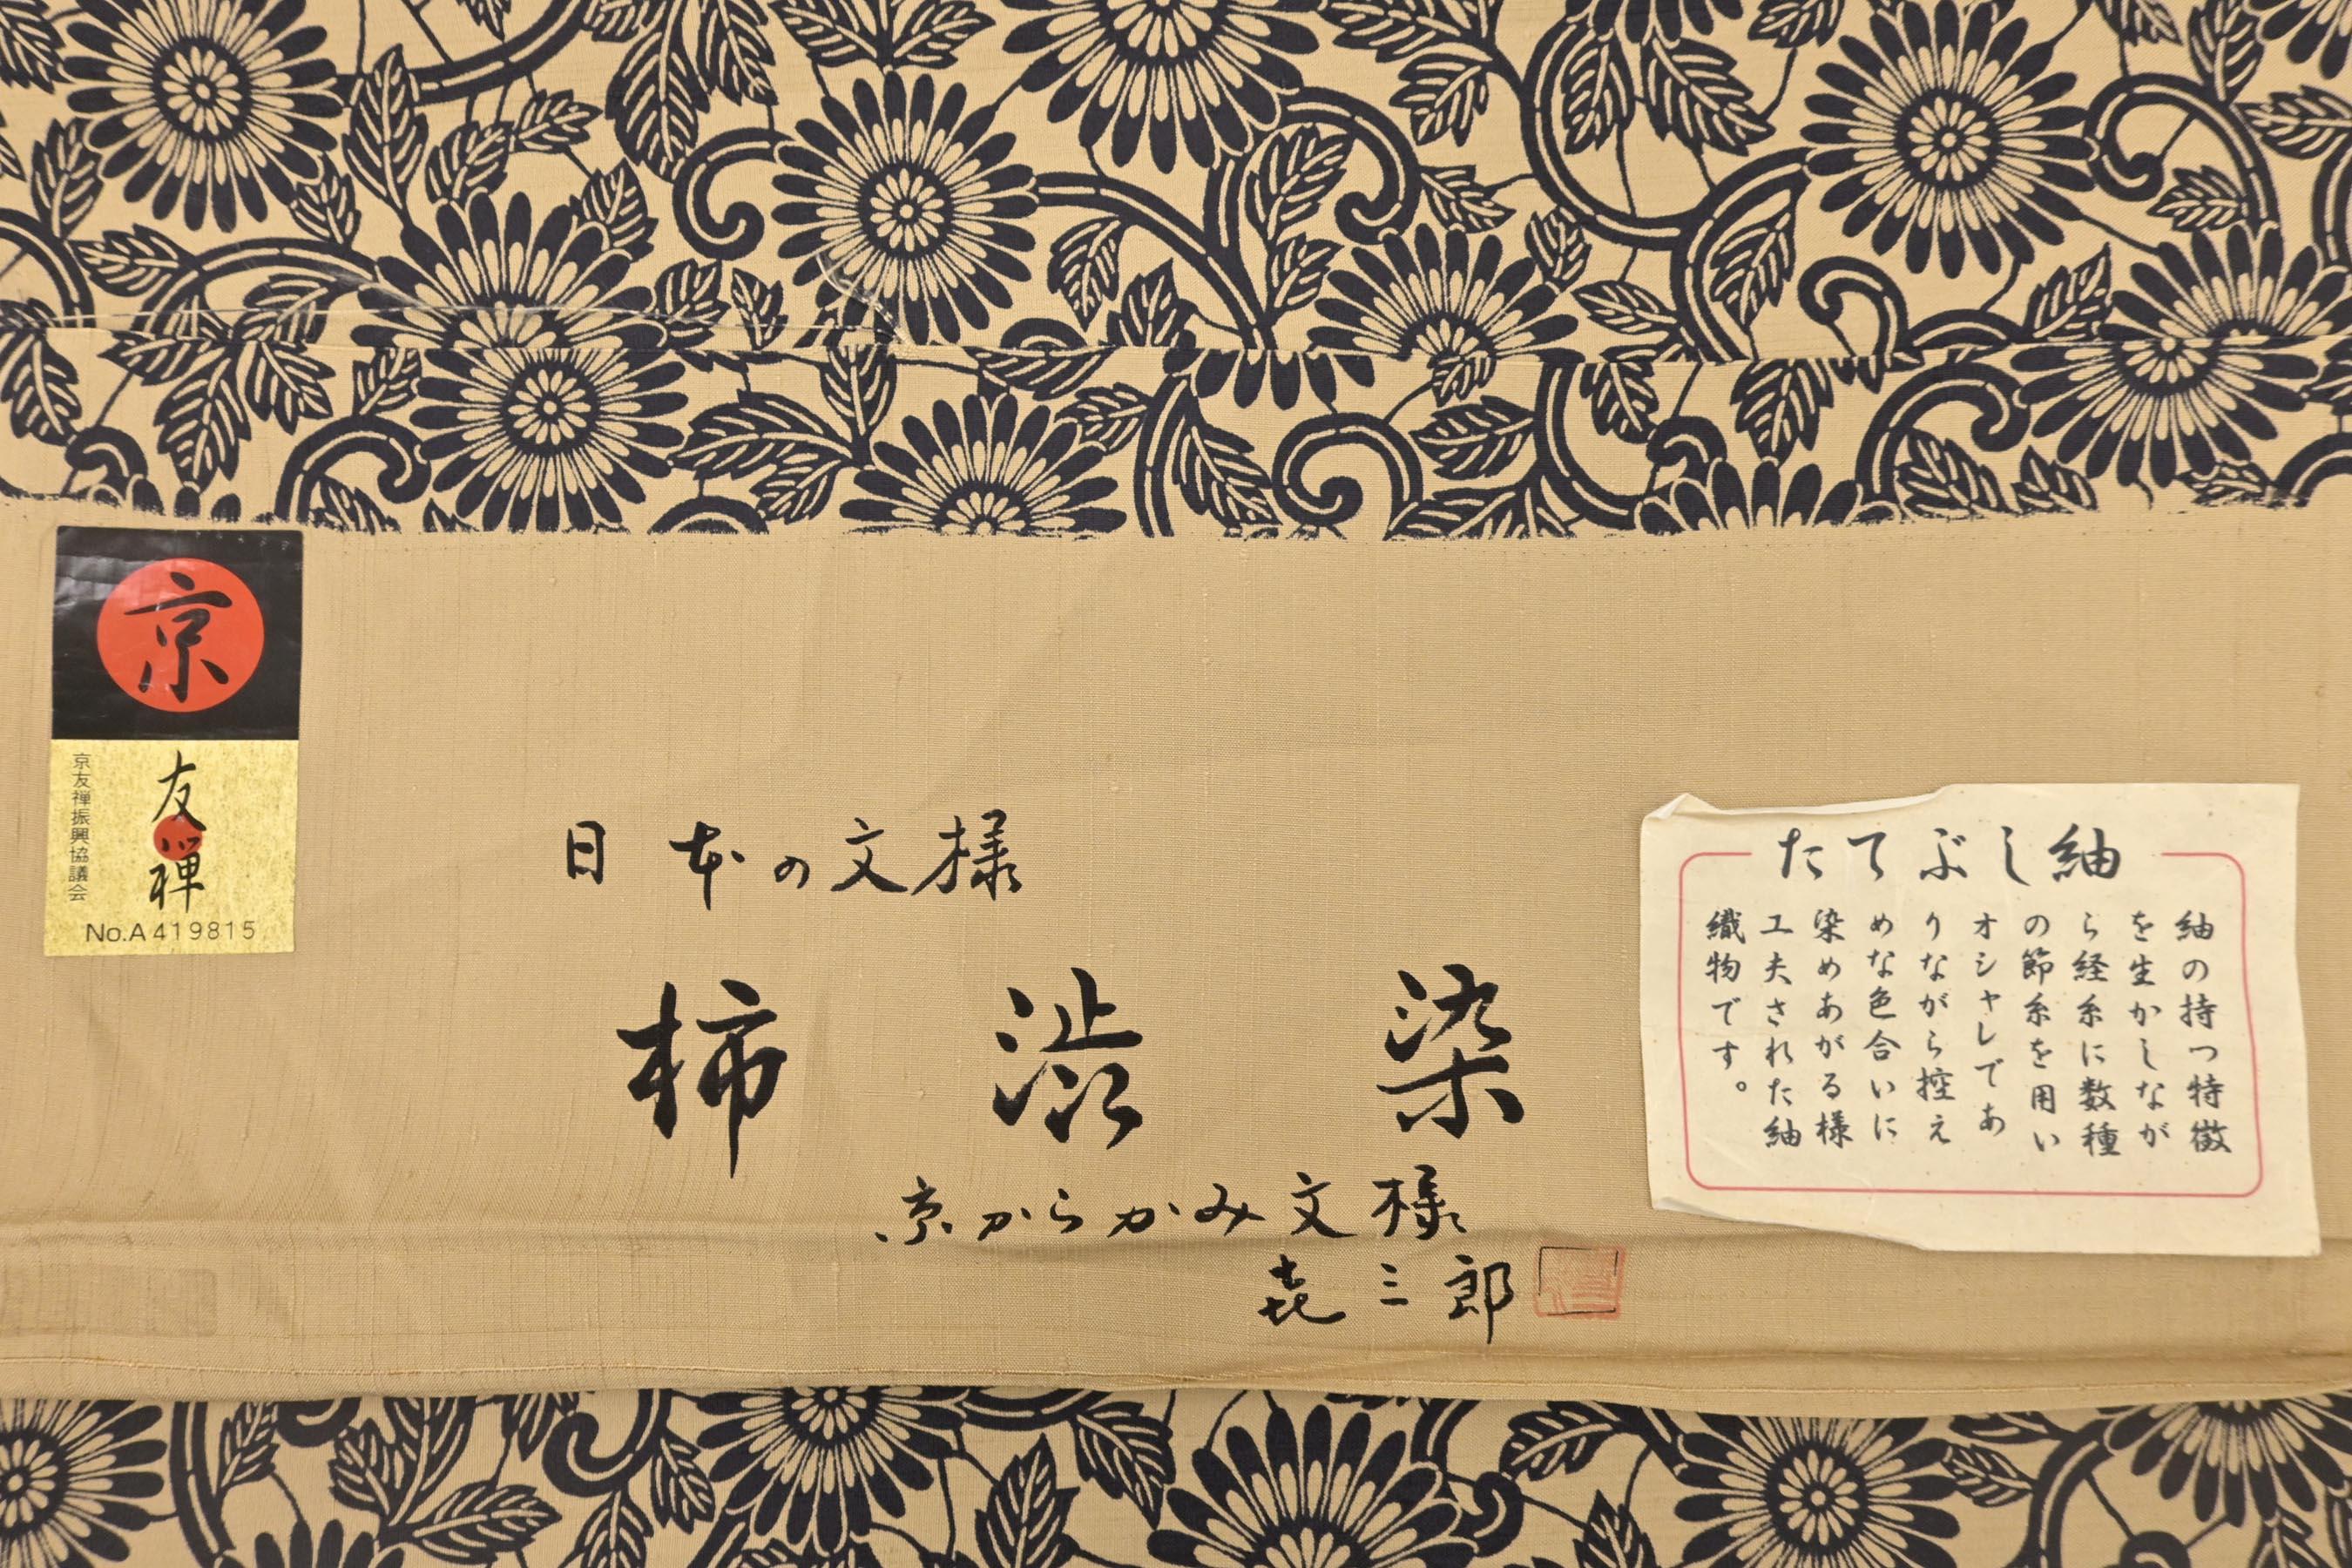 京
友禅
京友禅振興協議会
No.A419815
日本の文様
柿渋染
京からかみ文様
㐂三郎
たてぶし紬
紬の持つ特徴
を生かしなが
ら経糸に数種
の節糸を用い
オシャレであ
りながら控え
めな色合いに
染めあがる様
工夫された紬
織物です。